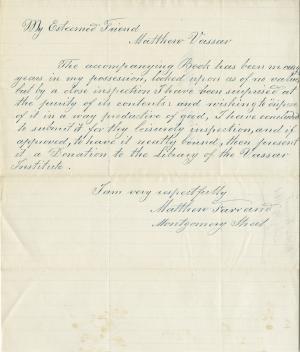 My Esteemed Friend
Matthew Vassar
The accompanying Book has been many
years in my possession, looked upon as of no value,
but by a close inspection I have been surprised at
the purity of its contents and wishing to dispose
of it in a way productive of good, I have concluded
to submit it for thy leisurely inspection, and if
approved, to have it neatly bound, then present
it a Donation to the Library of the Vassar
Institute.
I am very respectfully
Matthew Farrand
Montgomery Street